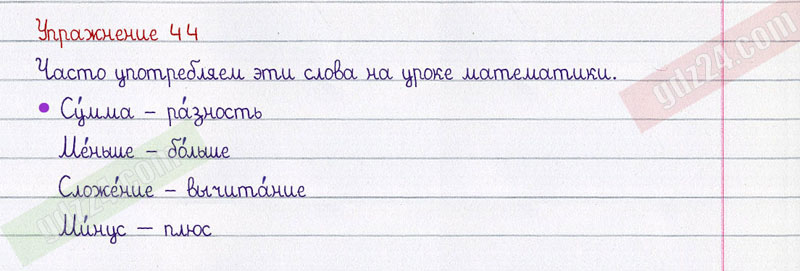 Упражнение 44
Часто употребляем эти слова на уроке математики.
• Су́мма – ра́зность
Ме́ньше – бо́льше
Сложе́ние – вычита́ние
Ми́нус — плюс
gdz24.com
gdz24.com